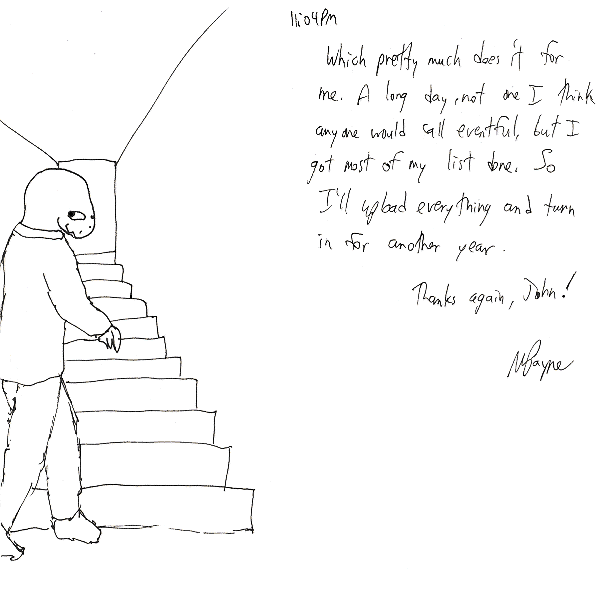 11:04PM
Which pretty much does it for
me. A long day, not one I think
anyone would call eventful, but I
got most of my list done. So
I'll upload everything and turn
in for another year.
Thanks again, John!
MPayne